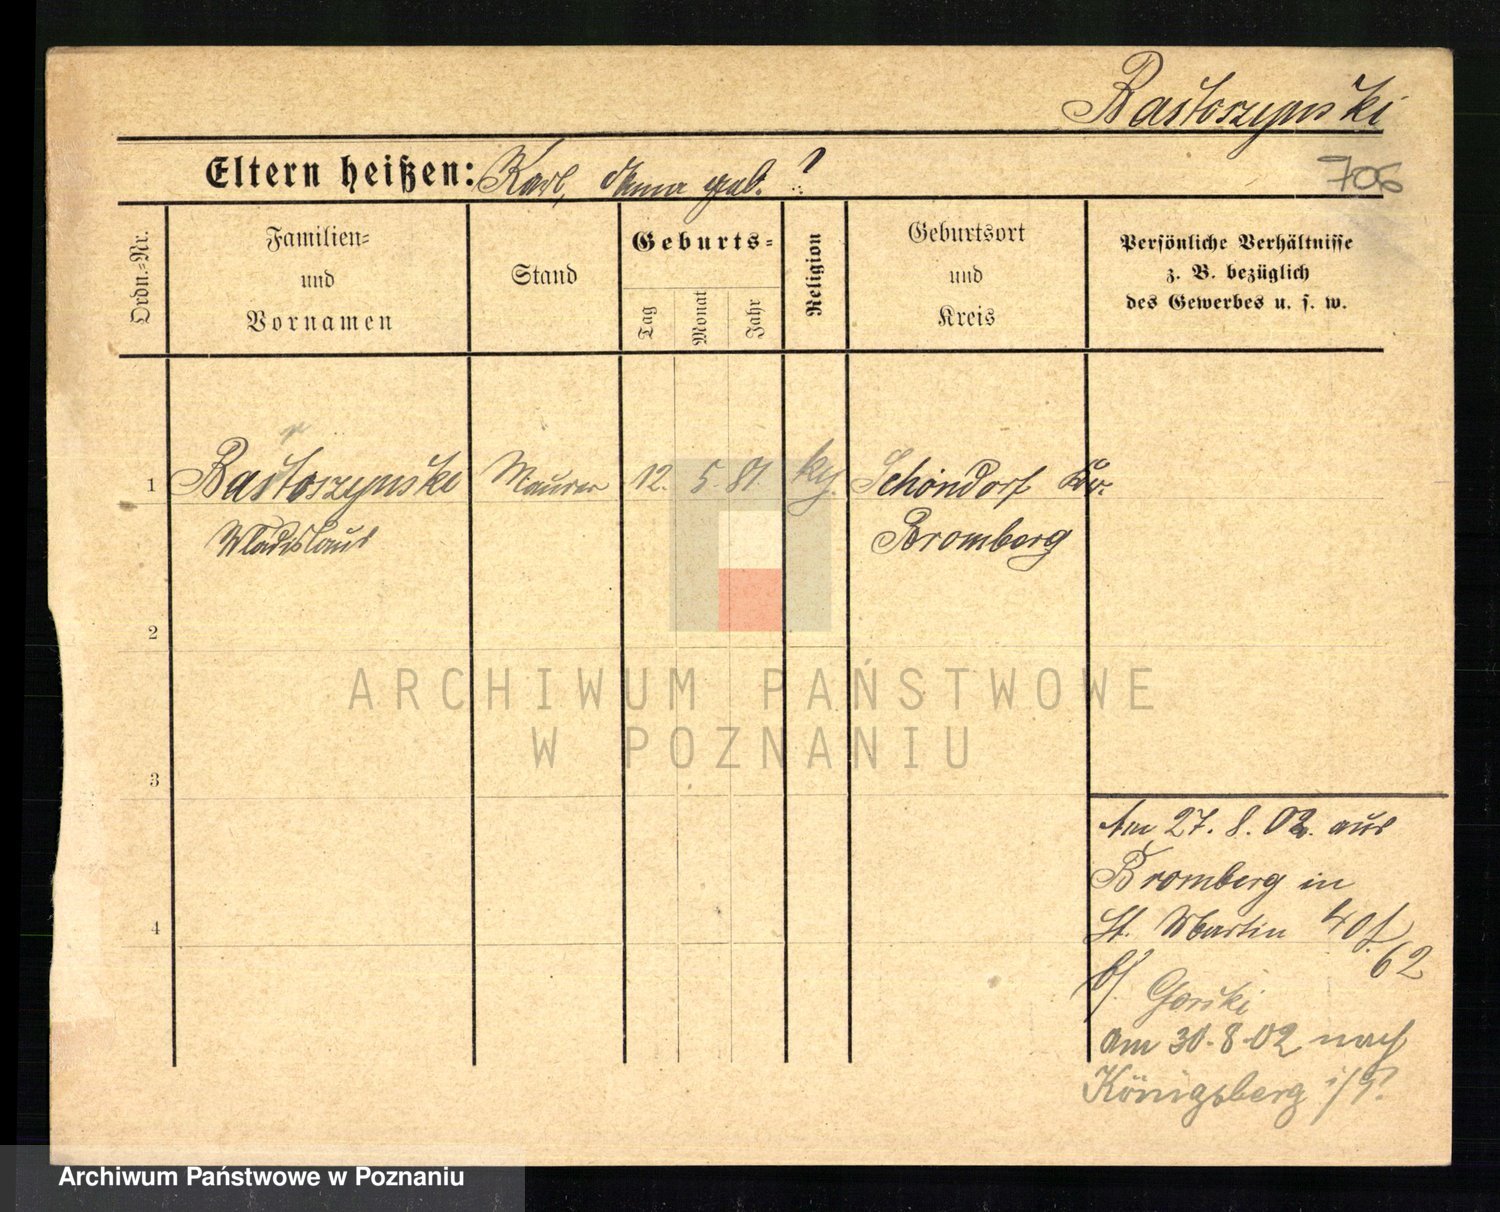 Bastoszynski
706
Eltern heißen: Karl, Anna geb. ?
Ordn.=Nr.
Familien=
und
Vornamen
Stand
Geburts=
Tag
Monat
Jahr
Religion
Geburtsort
und
Kreis
Persönliche Verhältnisse
z. B. bezüglich
des Gewerbes u. s. w.
1 Bastoszynski Maurer 12. 5. 81. Schöndorf Kr.
Wladislaus Bromberg
2
3
4
Am 27. 8. 02. aus
Bromberg in
St. Martin 40
62
b/ Gorski
am 30.8.02 nach
Königsberg i/P.
ARCHIWUM PAŃSTWOWE
W POZNANIU
Archiwum Państwowe w Poznaniu